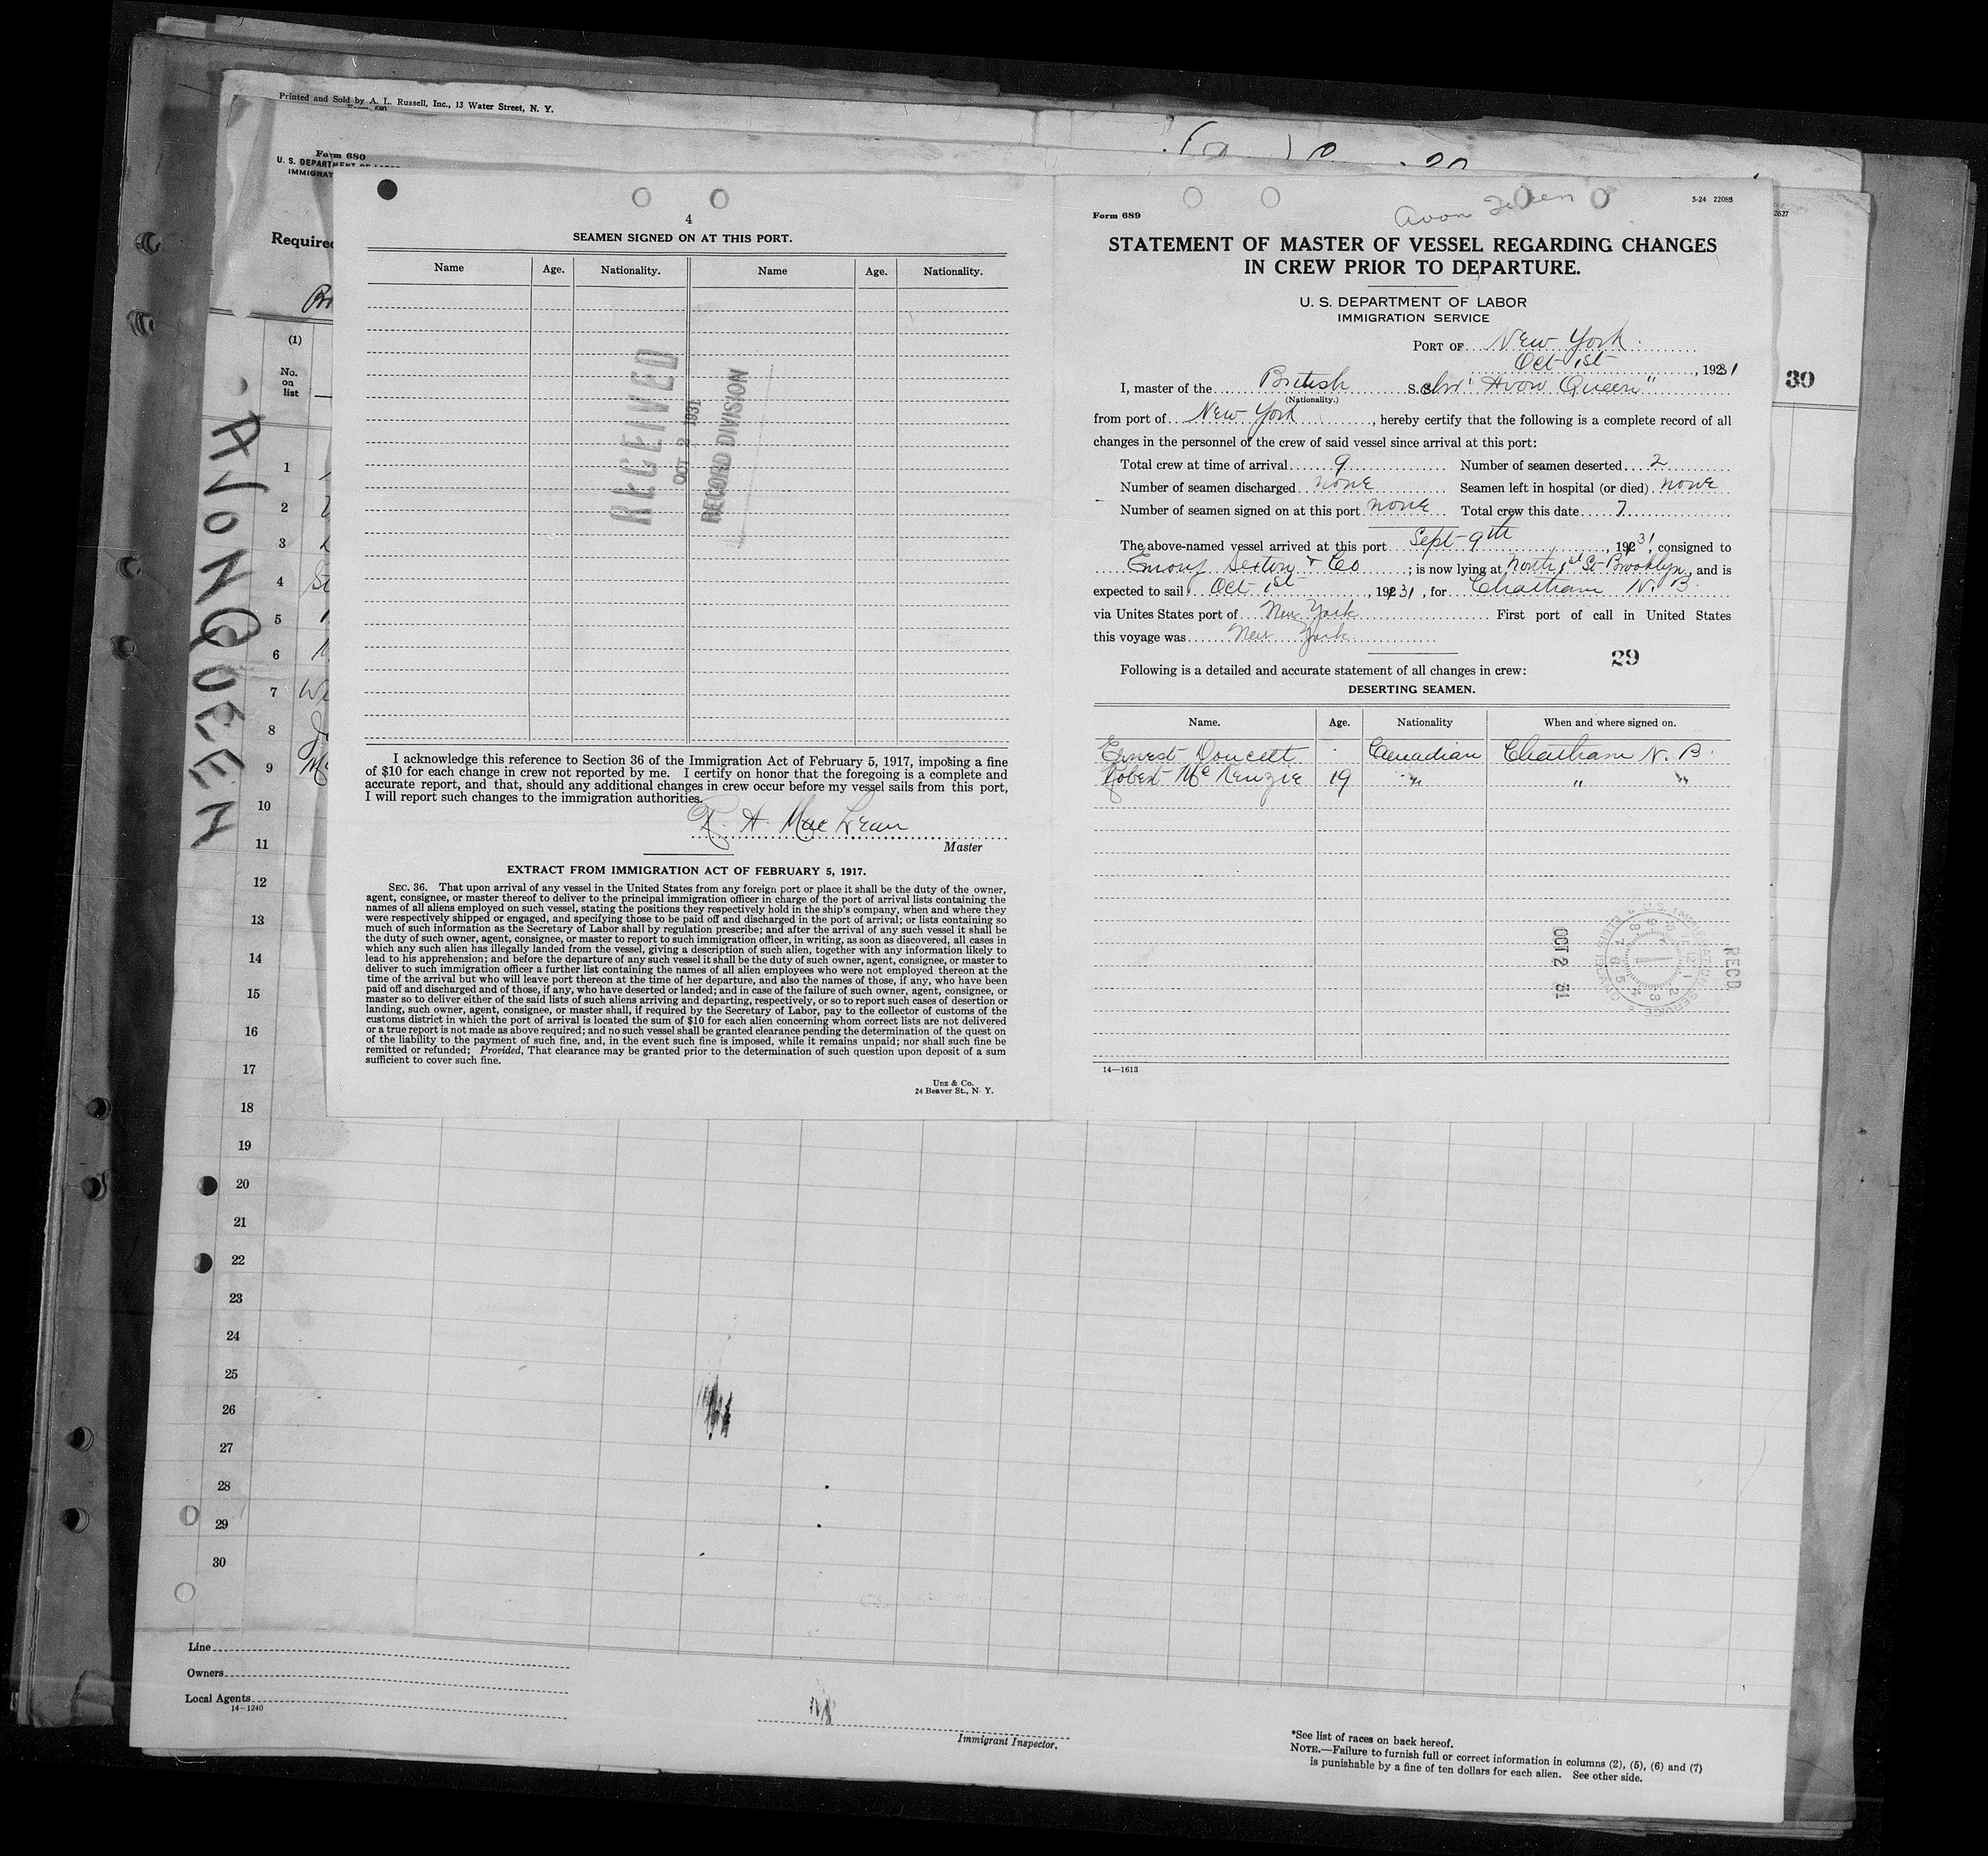 Printed and Sold by A. L. Russell, Inc., 13 Water Street, N. Y.
Form 680
U. S. DEPARTMENT OF LABOR
IMMIGRAT
Required
(1)
No.
on
list
1
2
3
4
5
6
7
8
9
10
11
12
13
14
15
16
17
18
19
20
21
22
23
24
25
26
27
28
29
30
AVONQUEEN
4
SEAMEN SIGNED ON AT THIS PORT.
Name Age. Nationality. Name Age. Nationality.
RECEIVED
OCT 2 1931
RECORD DIVISION
I acknowledge this reference to Section 36 of the Immigration Act of February 5, 1917, imposing a fine
of $10 for each change in crew not reported by me. I certify on honor that the foregoing is a complete and
accurate report, and that, should any additional changes in crew occur before my vessel sails from this port,
I will report such changes to the immigration authorities.
R. A. MacLean
Master
EXTRACT FROM IMMIGRATION ACT OF FEBRUARY 5, 1917.
SEC. 36. That upon arrival of any vessel in the United States from any foreign port or place it shall be the duty of the owner,
agent, consignee, or master thereof to deliver to the principal immigration officer in charge of the port of arrival lists containing the
names of all aliens employed on such vessel, stating the positions they respectively hold in the ship's company, when and where they
were respectively shipped or engaged, and specifying those to be paid off and discharged in the port of arrival; or lists containing so
much of such information as the Secretary of Labor shall by regulation prescribe; and after the arrival of any such vessel it shall be
the duty of such owner, agent, consignee, or master to report to such immigration officer, in writing, as soon as discovered, all cases in
which any such alien has illegally landed from the vessel, giving a description of such alien, together with any information likely to
lead to his apprehension; and before the departure of any such vessel it shall be the duty of such owner, agent, consignee, or master to
deliver to such immigration officer a further list containing the names of all alien employees who were not employed thereon at the
time of the arrival but who will leave port thereon at the time of her departure, and also the names of those, if any, who have been
paid off and discharged and of those, if any, who have deserted or landed; and in case of the failure of such owner, agent, consignee, or
master so to deliver either of the said lists of such aliens arriving and departing, respectively, or so to report such cases of desertion or
landing, such owner, agent, consignee, or master shall, if required by the Secretary of Labor, pay to the collector of customs of the
customs district in which the port of arrival is located the sum of $10 for each alien concerning whom correct lists are not delivered
or a true report is not made as above required; and no such vessel shall be granted clearance pending the determination of the quest on
of the liability to the payment of such fine, and, in the event such fine is imposed, while it remains unpaid; nor shall such fine be
remitted or refunded; Provided, That clearance may be granted prior to the determination of such question upon deposit of a sum
sufficient to cover such fine.
Unz & Co.
24 Beaver St., N. Y.
Form 689
Avon Queen
5-24 22088
STATEMENT OF MASTER OF VESSEL REGARDING CHANGES
IN CREW PRIOR TO DEPARTURE.
U. S. DEPARTMENT OF LABOR
IMMIGRATION SERVICE
PORT OF New York
Oct 1st, 1931
I, master of the British S. Schr "Avon Queen"
(Nationality.)
from port of New York, hereby certify that the following is a complete record of all
changes in the personnel of the crew of said vessel since arrival at this port:
Total crew at time of arrival 9 Number of seamen deserted 2
Number of seamen discharged none Seamen left in hospital (or died) none
Number of seamen signed on at this port none Total crew this date 7
The above-named vessel arrived at this port Sept 9th, 1931, consigned to
Sexton & Co; is now lying at North 1st St Brooklyn, and is
expected to sail Oct 1st, 1931, for Chatham N. B.
via Unites States port of New York First port of call in United States
this voyage was New York
29
Following is a detailed and accurate statement of all changes in crew:
DESERTING SEAMEN.
Name. Age. Nationality When and where signed on.
Ernest Doucett Canadian Chatham N. B.
Robert McKenzie 19 " " "
U.S. IMMIGRATION SERVICE
ELLIS ISLAND
REC'D
OCT 2 31
14—1613
30
2627
Line
Owners
Local Agents
14—1240
Immigrant Inspector.
*See list of races on back hereof.
NOTE.—Failure to furnish full or correct information in columns (2), (5), (6) and (7)
is punishable by a fine of ten dollars for each alien. See other side.